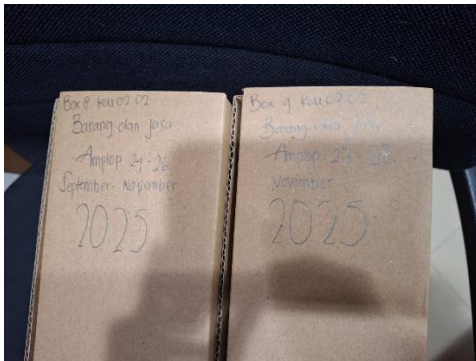 Box 8 Keu 02 02
Barang dan jasa
Amplop 24 - 26
September - November
2025
Box 9 Keu 02 02
Barang dan Jasa
Amplop 27 - 28
November
2025